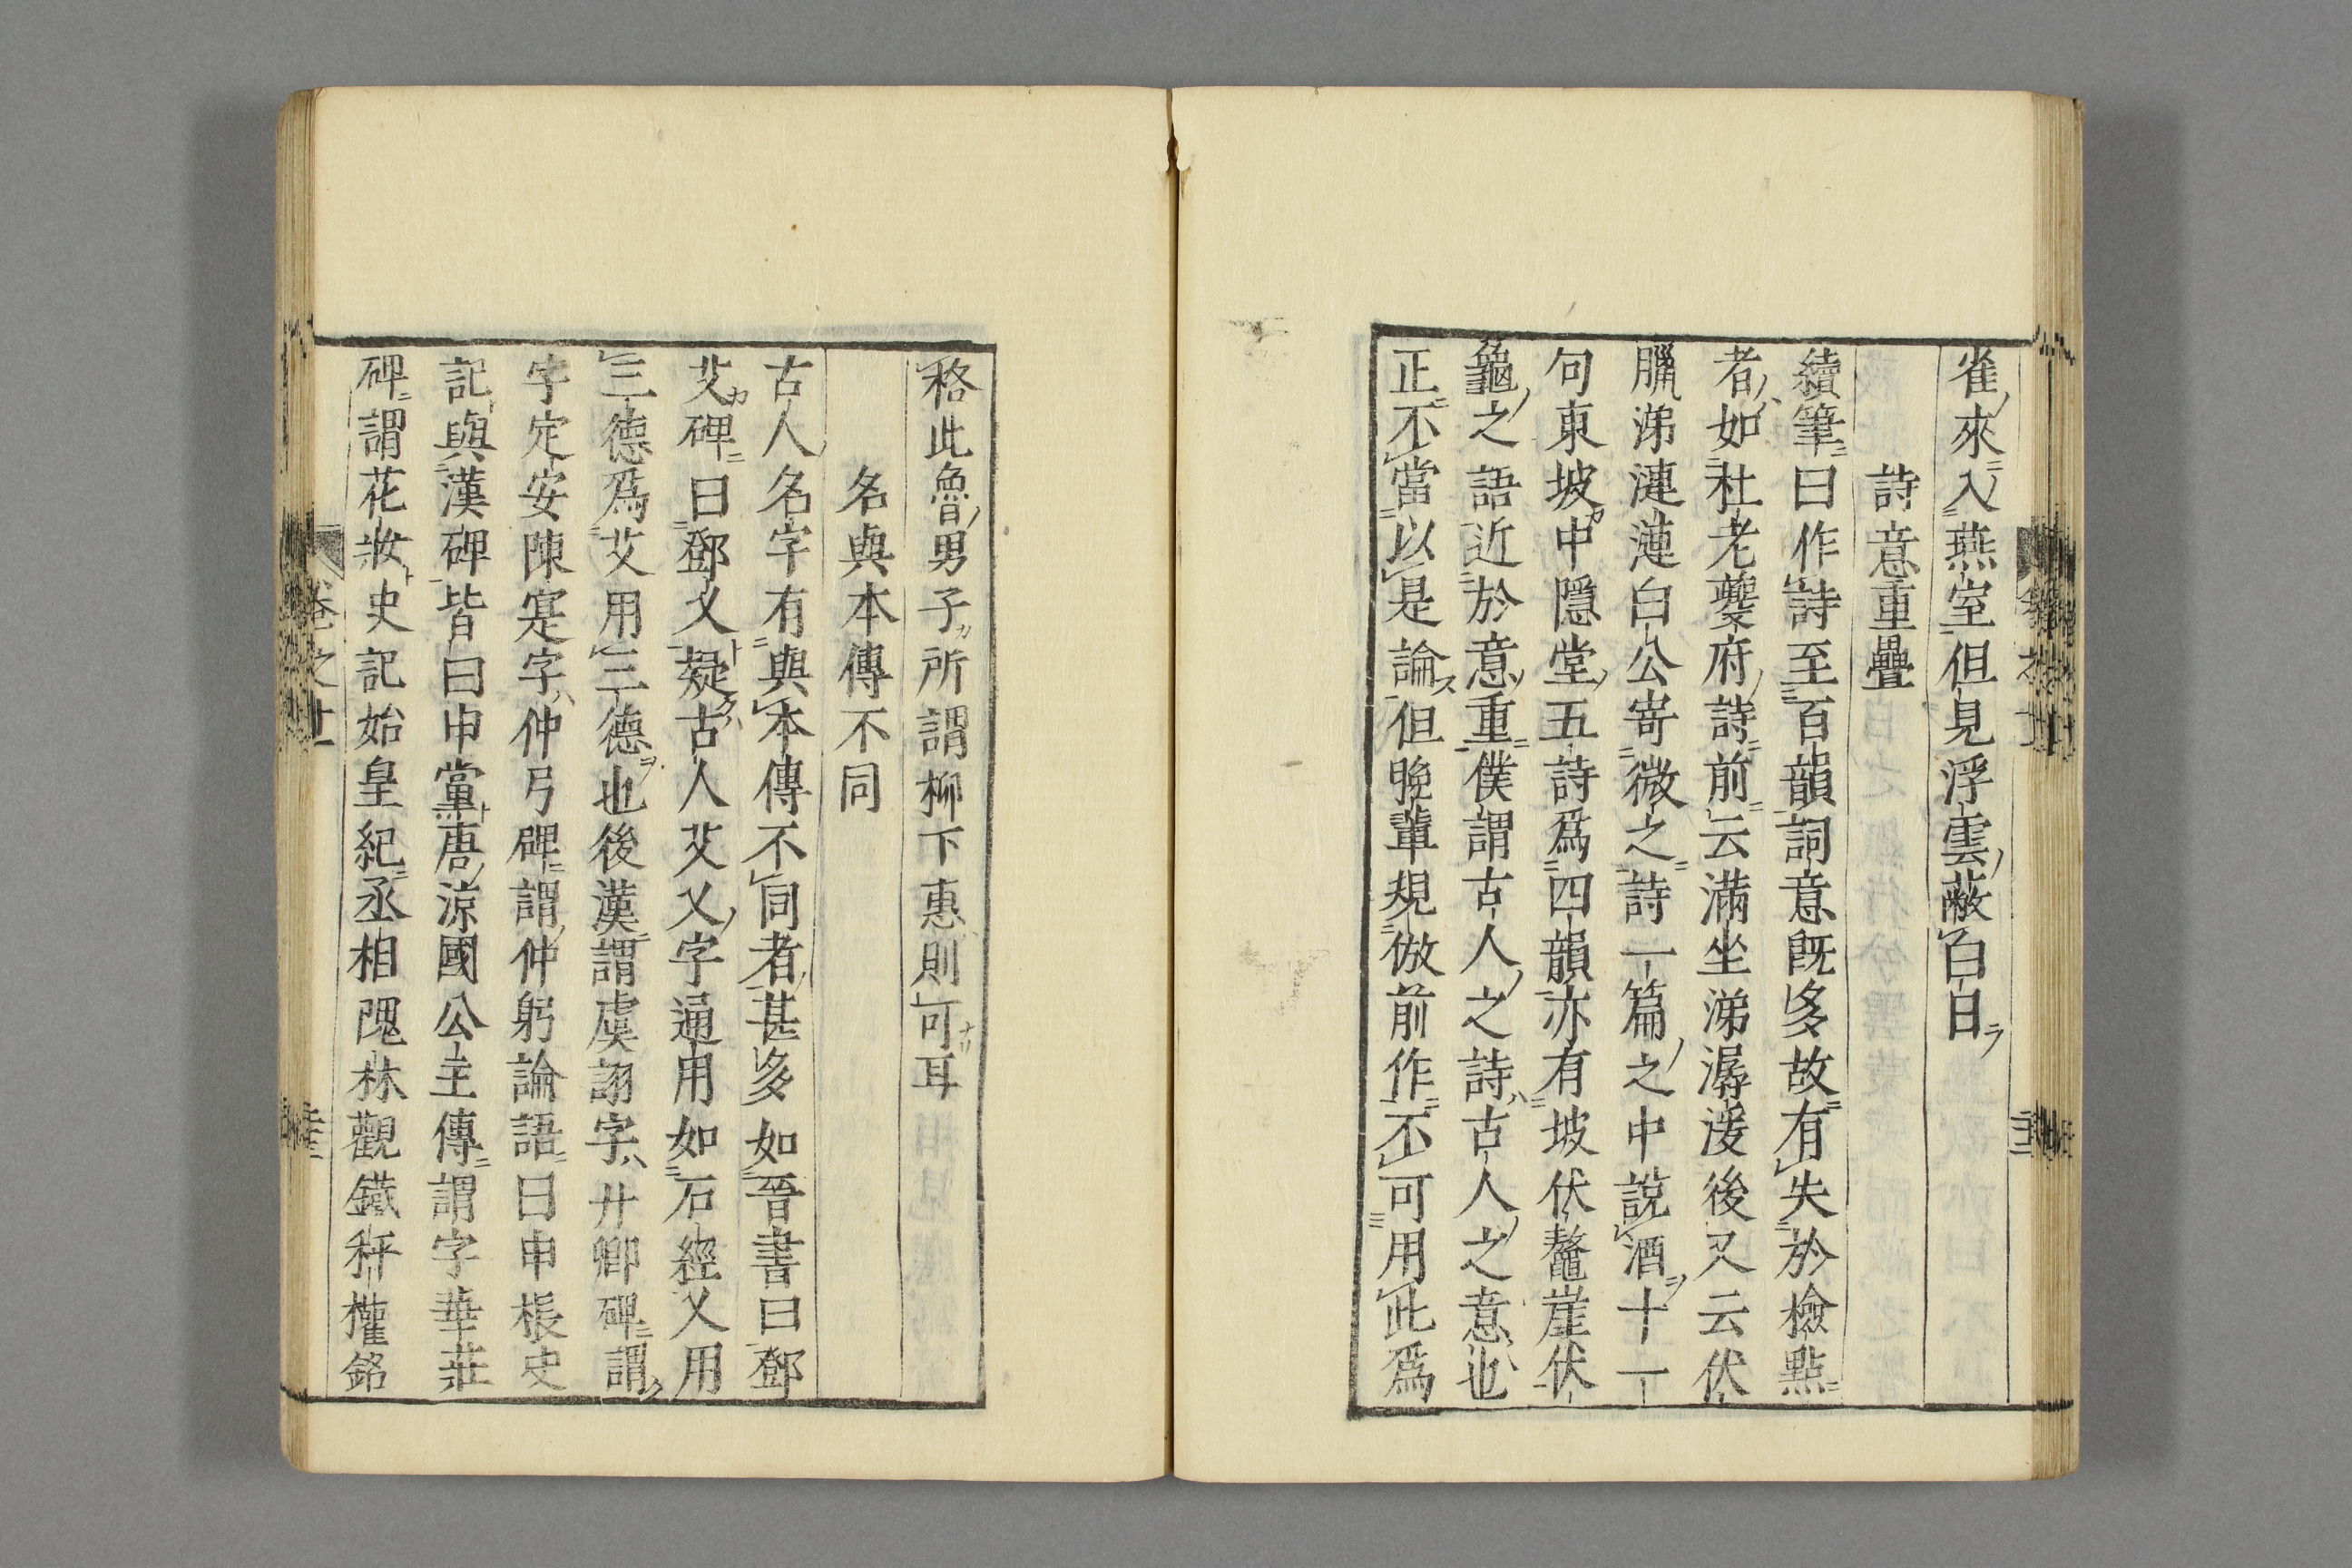 雀來入燕室但見浮雲蔽白日
詩意重疊
續筆曰作詩至百韻詞意既多故有失於檢點
者如杜老夔府詩前云滿坐涕潺湲後又云伏
臘涕漣漣白公寄微之詩一篇之中說酒十一
句東坡中隱堂五詩爲四韻亦有坡伏鼇崖伏
龜之語近於意重僕謂古人之詩古人之意也
正不當以是論但晚輩規倣前作不可用此爲
格此魯男子所謂柳下惠則可耳
名與本傳不同
古人名字有與本傳不同者甚多如晉書曰鄧
艾碑曰鄧乂疑古人艾乂字通用如石經乂用
三德爲艾用三德也後漢謂虞詡字升卿碑謂
字定安陳寔字仲弓碑謂仲躬論語曰申棖史
記與漢碑皆曰申黨唐涼國公主傳謂字華莊
碑謂花妝史記始皇紀丞相隗林觀鐵秤權銘
卷之廿